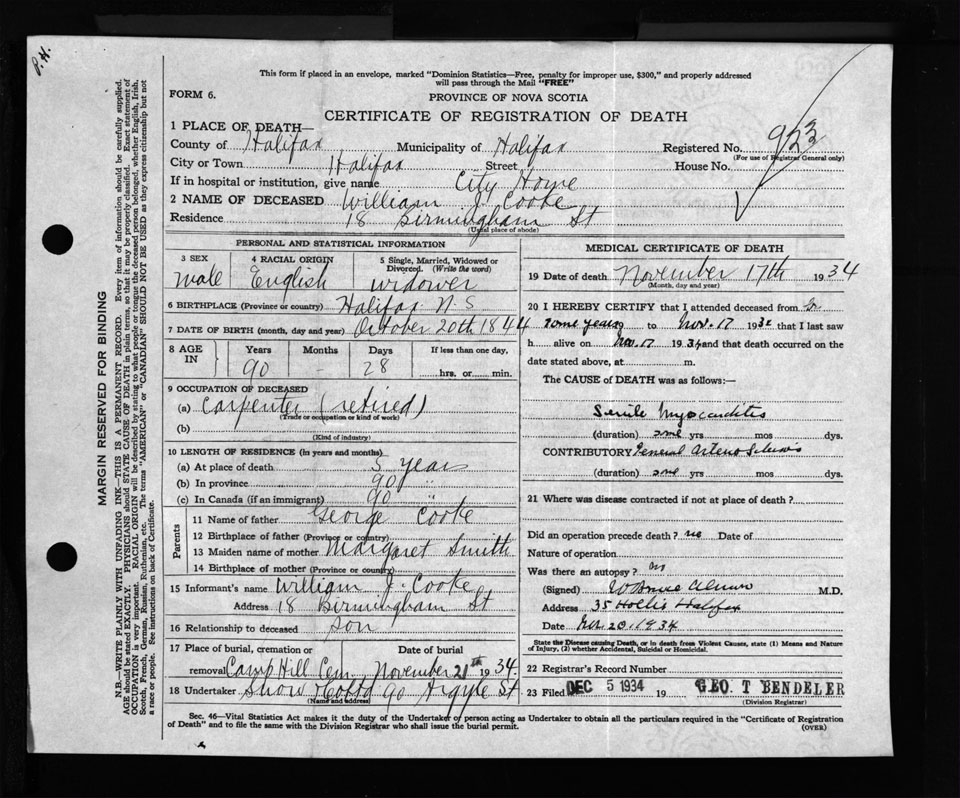 P.H.
This form if placed in an envelope, marked "Dominion Statistics—Free, penalty for improper use, $300," and properly addressed
will pass through the Mail "FREE"
FORM 6.
PROVINCE OF NOVA SCOTIA
CERTIFICATE OF REGISTRATION OF DEATH
1 PLACE OF DEATH—
County of Halifax Municipality of Halifax Registered No. 923
(For use of Registrar General only)
City or Town Halifax Street House No.
If in hospital or institution, give name City Home
2 NAME OF DECEASED William J. Cooke
Residence 18 Birmingham St
(Usual place of abode)
PERSONAL AND STATISTICAL INFORMATION
3 SEX 4 RACIAL ORIGIN 5 Single, Married, Widowed or Divorced. (Write the word)
male English widower
6 BIRTHPLACE (Province or country) Halifax N.S
7 DATE OF BIRTH (month, day and year) October 20th 1844
8 AGE IN Years Months Days If less than one day,
90 - 28 hrs. or min.
9 OCCUPATION OF DECEASED
(a) Carpenter (retired)
(Trade or occupation or kind of work)
(b)
(Kind of industry)
10 LENGTH OF RESIDENCE (in years and months)
(a) At place of death 5 years
(b) In province 90 "
(c) In Canada (if an immigrant) 90 "
Parents
11 Name of father George Cooke
12 Birthplace of father (Province or country)
13 Maiden name of mother Margaret Smith
14 Birthplace of mother (Province or country)
15 Informant's name William J. Cooke
Address 18 Birmingham St
16 Relationship to deceased son
17 Place of burial, cremation or Date of burial
removal Camp Hill Cem. November 20th 1934
18 Undertaker Snow 90 Argyle St
(Name and address)
MEDICAL CERTIFICATE OF DEATH
19 Date of death November 17th 1934
(Month, day and year)
20 I HEREBY CERTIFY that I attended deceased from for
some years to Nov. 17 193 that I last saw
h alive on Nov. 17 1934 and that death occurred on the
date stated above, at m.
The CAUSE of DEATH was as follows:—
Senile Myocarditis
(duration) some yrs mos dys.
CONTRIBUTORY General Arterio Sclerosis
(duration) some yrs mos dys.
21 Where was disease contracted if not at place of death?
Did an operation precede death? no Date of
Nature of operation
Was there an autopsy? no
(Signed) M.D.
Address 35 Hollis Halifax
Date 20. 1934
State the Disease causing Death, or in death from Violent Causes, state (1) Means and Nature
of Injury, (2) whether Accidental, Suicidal or Homicidal.
22 Registrar's Record Number
23 Filed DEC 5 1934 19 GEO. T BENDELER
(Division Registrar)
Sec. 46—Vital Statistics Act makes it the duty of the Undertaker or person acting as Undertaker to obtain all the particulars required in the "Certificate of Registration
of Death" and to file the same with the Division Registrar who shall issue the burial permit.
(OVER)
MARGIN RESERVED FOR BINDING
N.B.—WRITE PLAINLY WITH UNFADING INK—THIS IS A PERMANENT RECORD. Every item of information should be carefully supplied.
AGE should be stated EXACTLY. PHYSICIANS should STATE CAUSE OF DEATH in plain terms, so that it may be properly classified. Exact statement of
OCCUPATION is very important. RACIAL ORIGIN will be described by stating to what people or tongue the deceased person belonged, whether English, Irish,
Scotch, French, German, Russian, Ruthenian, etc. The terms "AMERICAN" or "CANADIAN" SHOULD NOT BE USED as they express citizenship but not
a race or people. See instructions on back of Certificate.